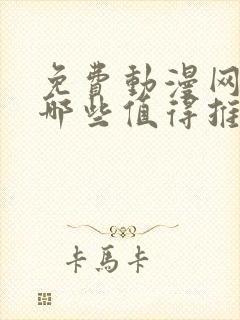 免費動漫网
哪些值得推
卡馬卡